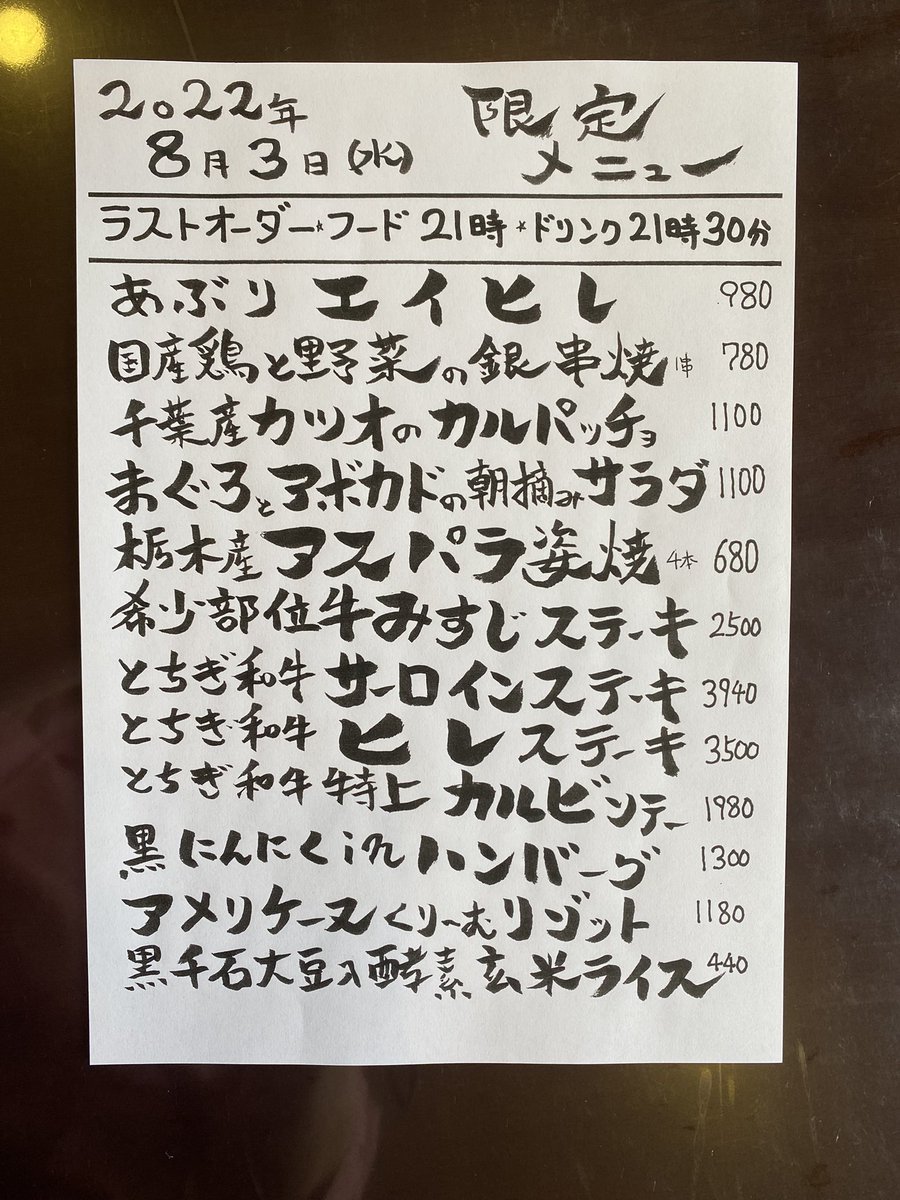 2022年 限定
8月3日(水) メニュー
ラストオーダー*フード 21時*ドリンク21時30分
あぶり エイヒレ 980
国産鶏と野菜の銀串焼 1串 780
千葉産カツオのカルパッチョ 1100
まぐろとアボカドの朝摘みサラダ 1100
栃木産アスパラ姿焼 4本 680
希少部位牛みすじステーキ 2500
とちぎ和牛 サーロインステーキ 3940
とちぎ和牛 ヒレステーキ 3500
とちぎ和牛特上 カルビソテー 1980
黒にんにくinハンバーグ 1300
アメリケーヌくりーむリゾット 1180
黒千石大豆入酵素玄米ライス 440